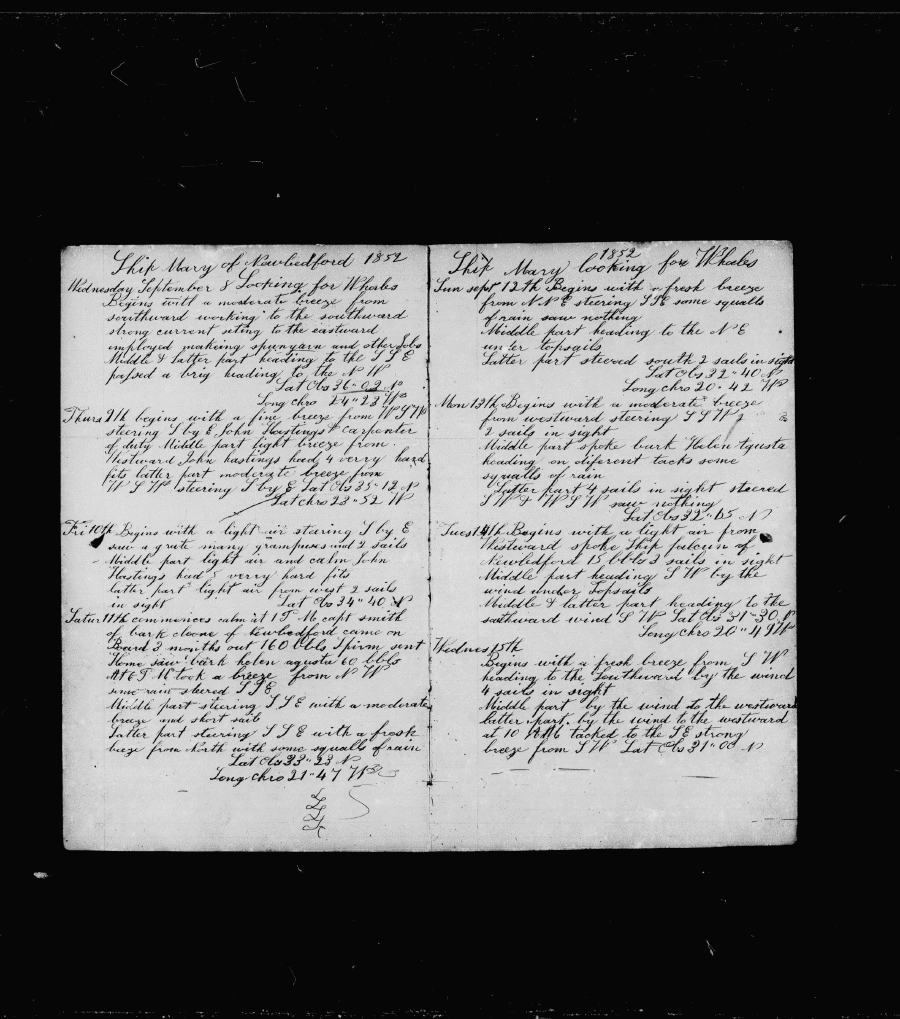 Ship Mary of Newbedford 1852
Wednesday September 8 Looking for Whales
Begins with a moderate breeze from
southward working to the southward
strong current seting to the eastward
employed makeing spunyarn and other Jobs
Middle & latter part heading to the S S E
passed a brig heading to the N W
Lat Obs 36" 02 N
Long chro 24" 23 W
Thurs 9th begins with a fine breeze from W S W
steering S by E John Hastings & Carpenter
of duty Middle part light breeze from
Westward John hastings had 4 verry hard
fits latter part moderate breeze from
W S W steering S by E Lat Obs 35" 12 N
Lat chro 23" 52 W
Fri 10th Begins with a light air stearing S by E
saw a grate many grampuses and 2 sails
Middle part light air and calm John
Hastings had 5 verry hard fits
latter part light air from west 2 sails
in sight Lat Obs 34" 40 N
Satur 11th commences calm at 1 P M capt smith
of bark cleone of Newbedford came on
Board 3 months out 160 bbls Spirm sent
Home saw bark helen agusta 60 bbls
At 6 P M took a breeze from N W
some rain steered S S E
Middle part steering S S E with a moderate
breeze and short sail
Latter part stearing S S E with a fresh
beeze from North with some squalls of rain
Lat Obs 33" 23 N
Long chro 21" 47 W
1852
Ship Mary looking for Whales
Sun sept 12th Begins with a fresh breeze
from N N E steering S S E some squalls
of rain saw nothing
Middle part heading to the N E
under topsails
Latter part steered south 2 sails in sight
Lat Obs 32" 40 N
Long chro 20" 42 W
Mon 13th Begins with a moderate breeze
from westward steering S S W
2 sails in sight
Middle part spoke bark Helen Agusta
heading on diferent tacks some
squalls of rain
Latter part 4 sails in sight steered
S W & W S W saw nothing
Lat Obs 32" 05 N
Tues 14th Begins with a light air from
Westward spoke Ship falcun of
Newbedford 15 bbls 3 sails in sight
Middle part heading S W by the
wind under topsails
Middle & latter part heading to the
sathward wind S W Lat Obs 31" 30 N
Long chro 20" 49 W
Wednes 15th
Begins with a fresh breeze from S W
heading to the Southward by the wind
4 sails in sight
Middle part by the wind to the westward
latter part by the wind to the westward
at 10 AM tacked to the SE strong
breez from S W Lat Obs 31" 00 N